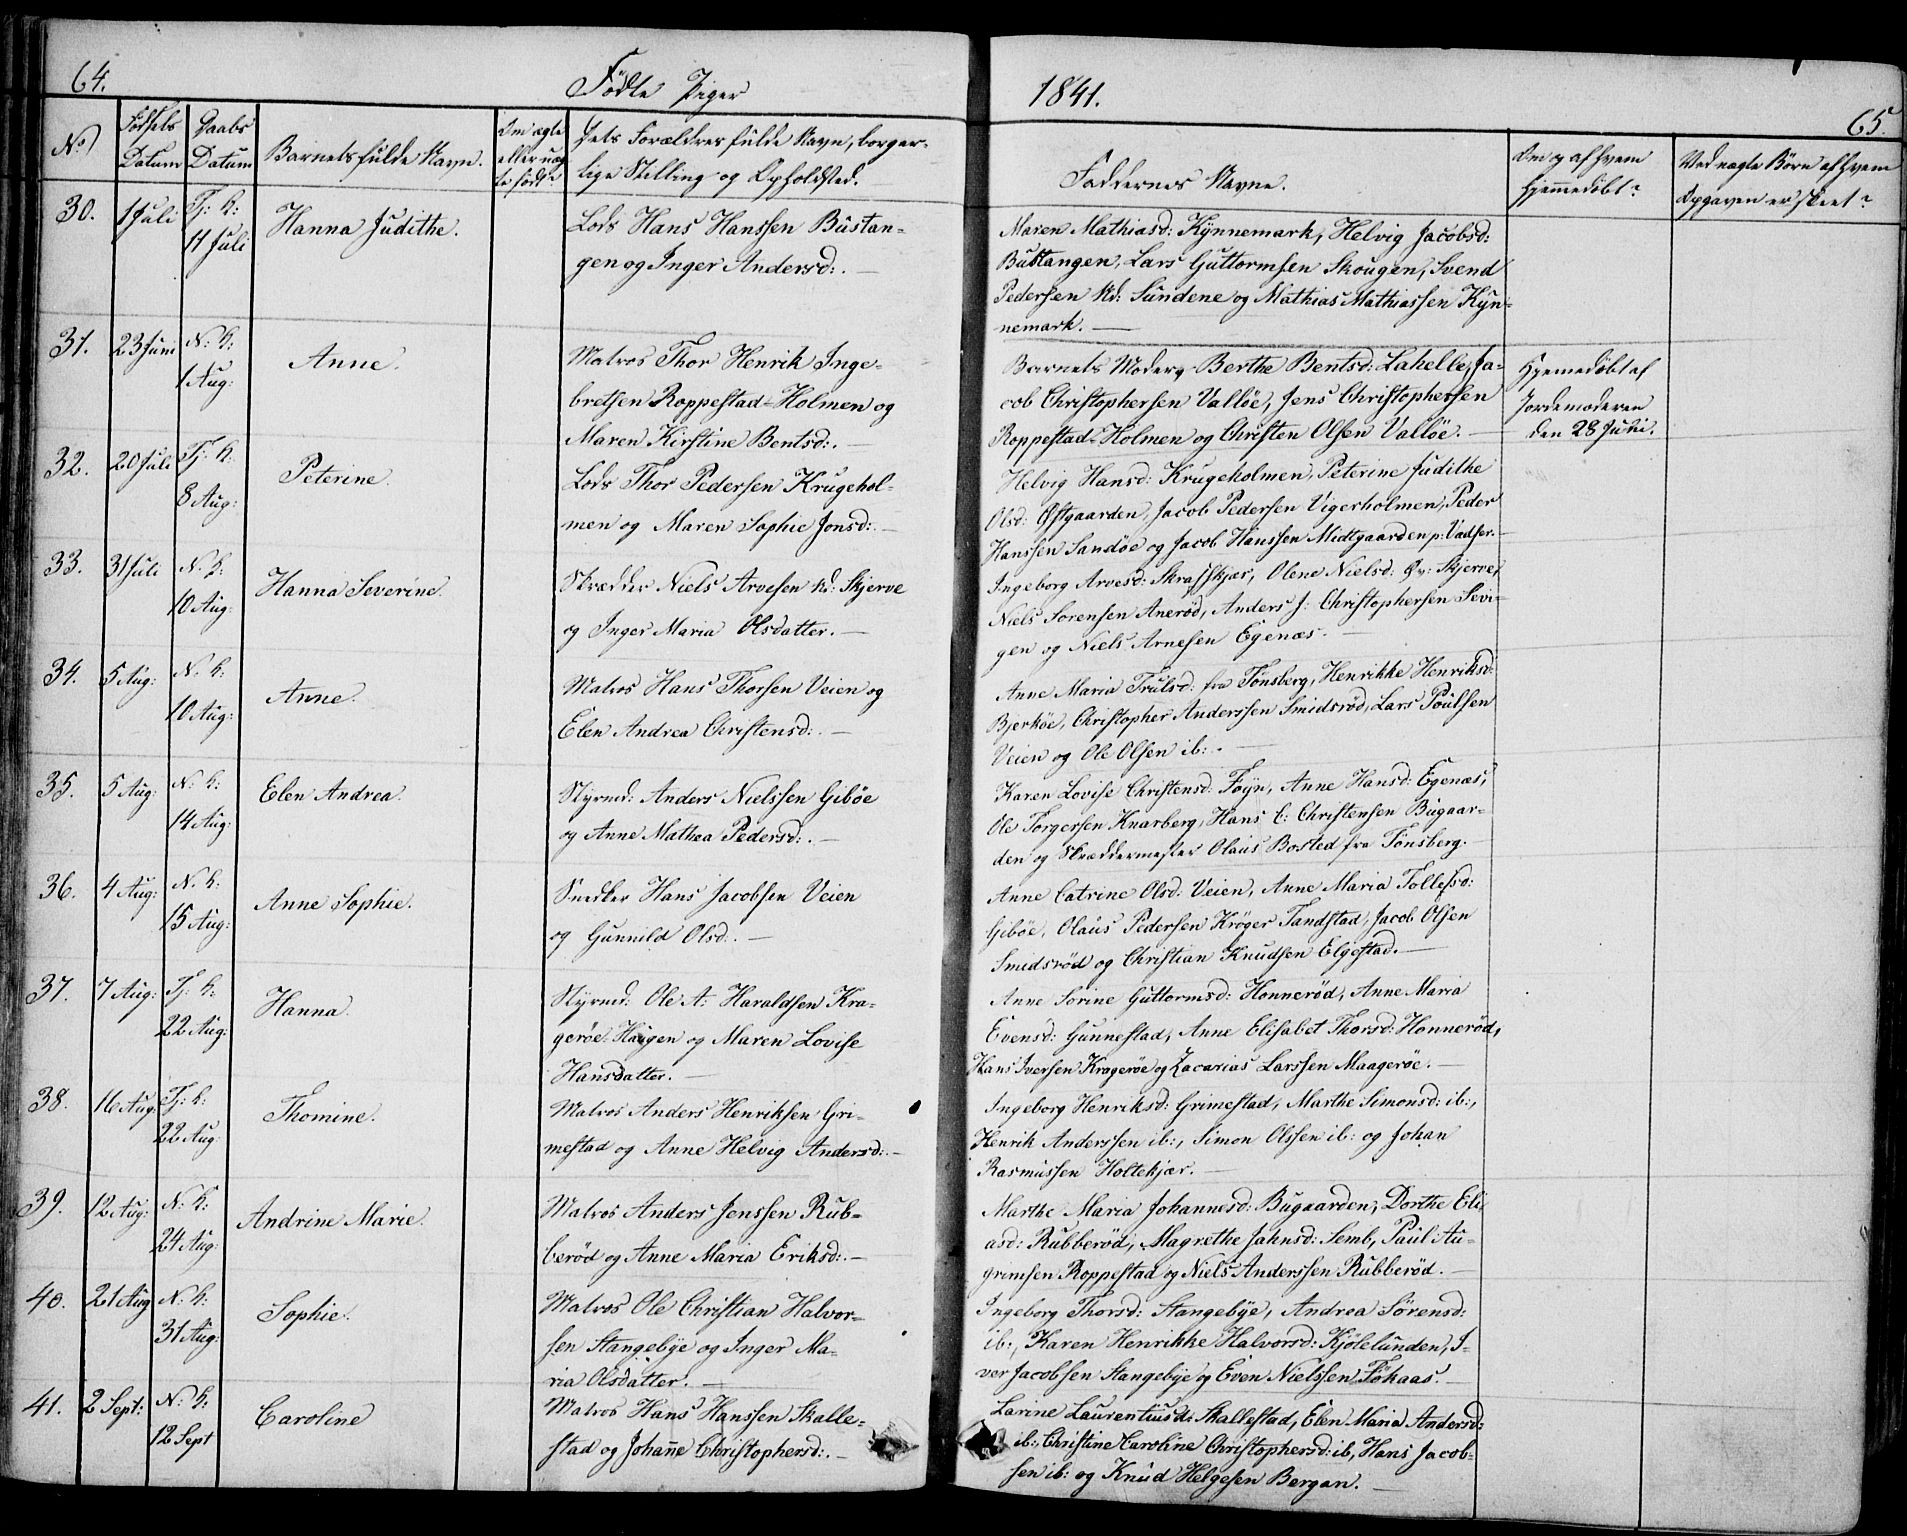 64.
Födte Piger
1841.
65.
No
Fødsels Datum
Daabs Datum
Barnets fulde Navn.
Om ægte eller uægte født
Dets Forældres fulde Navn, borger-
lige Stilling og Opholdsted.
Faddernes Navne.
Om og af hvem
hjemmedöbt?
Ved uægte Börn af hvem
Opgaven er skeet?
30.
1 Juli
Tj: K:
11 Juli
Hanna Judithe.
Lods Hans Hanssen Bustan-
gen og Inger Andersd:. —
Maren Mathiasd: Kynnemark, Helvig Jacobsd:
Bustangen, Lars Guttormsen Skougen, Svend
Pedersen Nd: Sundene og Mathias Mathiassen Kyn-
nemark. —
31.
23 Juni
N: K:
1 Aug:
Anne.
Matros Thor Henrik Inge-
bretsen Roppestad-Holmen og
Maren Kirstine Bentsd:.
Barnets Moder, Berthe Bentsd: Lahelle, Ja-
cob Christophersen Vallöe, Jens Christophersen
Roppestad-Holmen og Christen Olsen Vallöe. —
Hjemmedöbt af
Jordemoderen
den 28 Juni.
32.
20 Juli
Tj: K:
8 Aug:
Peterine.
Lods Thor Pedersen Krugehol-
men og Maren Sophie Jonsd:. —
Helvig Hansd: Krugeholmen, Peterine Judithe
Olsd: Østgaarden, Jacob Pedersen Vigerholmen, Peder
Hanssen Sandöe og Jacob Hanssen Midtgaarden p: Vadser. —
33.
31 Juli
N: K:
10 Aug:
Hanna Severine.
Skrædder Niels Arvesen Nd: Skjerve
og Inger Maria Olsdatter. —
Ingeborg Arvesd: Skrafskjær, Olene Nielsd: Øv: Skjerve,
Niels Sorensen Aneröd, Anders J: Christophersen Sevi-
gen og Niels Arnesen Egenæs. —
34.
5 Aug:
N: K:
10 Aug:
Anne.
Matros Hans Thorsen Veien og
Elen Andrea Christensd:. —
Anne Maria Trulsd: fra Tönsberg, Henrikke Henriksd:
Bjerköe, Christopher Anderssen Smidsröd, Lars Poulsen
Veien og Ole Olsen ib:. —
35.
5 Aug:
N: K:
14 Aug:
Elen Andrea.
Styrmd: Anders Nielssen Giböe
og Anne Mathea Pedersd:. —
Karen Lovise Christensd: Föyn, Anne Hansd: Egenæs,
Ole Torgersen Knarberg, Hans C: Christensen Bugaar-
den og Skræddermester Olaus Bosted fra Tönsberg.
36.
4 Aug:
N: K:
15 Aug:
Anne Sophie.
Snedker Hans Jacobsen Veien
og Gunnild Olsd:. —
Anne Catrine Olsd: Veien, Anne Maria Tollefsd:
Giböe, Olaus Pedersen Kröger Tandstad, Jacob Olsen
Smidsröd og Christian Knudsen Elgestad. —
37.
7 Aug:
Tj: K:
22 Aug:
Hanna.
Styrmd: Ole A: Haraldsen Kra-
geröe-Haugen og Maren Lovise
Hansdatter. —
Anne Sorine Guttormsd: Honneröd, Anne Maria
Evensd: Gunnestad, Anne Elisabet Thorsd: Honneröd,
Hans Iversen Krageröe og Zacarias Larssen Maageröe. —
38.
16 Aug:
Tj: K:
22 Aug:
Thomine.
Matros Anders Henriksen Gri-
mestad og Anne Helvig Andersd:. —
Ingeborg Henriksd: Grimestad, Marthe Simonsd: ib:,
Henrik Anderssen ib:, Simon Olssen ib: og Johan
Rasmussen Holtekjær. —
39.
12 Aug:
N: K:
24 Aug:
Andrine Marie.
Matros Anders Jenssen Rub-
beröd og Anne Maria Eriksd:. —
Marthe Maria Johannesd: Bugaarden, Dorthe Eli
asd: Rubberöd, Magrethe Jahnsd: Semb, Paul Au-
grimsen Roppestad og Niels Anderssen Rubberöd. —
40.
21 Aug
N: K:
31 Aug:
Sophie.
Matros Ole Christian Halvor-
sen Stangebye og Inger Ma-
ria Olsdatter. —
Ingeborg Thorsd: Stangebye, Andrea Sörensd:
ib:, Karen Henrikke Halvorsd: Kjölelunden, I-
ver Jacobsen Stangebye og Even Nielssen Föhaas. —
41.
2 Sept:
N: K:
12 Sept
Caroline
Matros Hans Hanssen Skalle-
stad og Johanne Christophersd:. —
Larine Laurentiusd: Skallestad, Elen Maria Andersd:
ib:, Christine Caroline Christophersd: ib, Hans Jacob-
sen ib: og Knud Helgesen Bergan. —